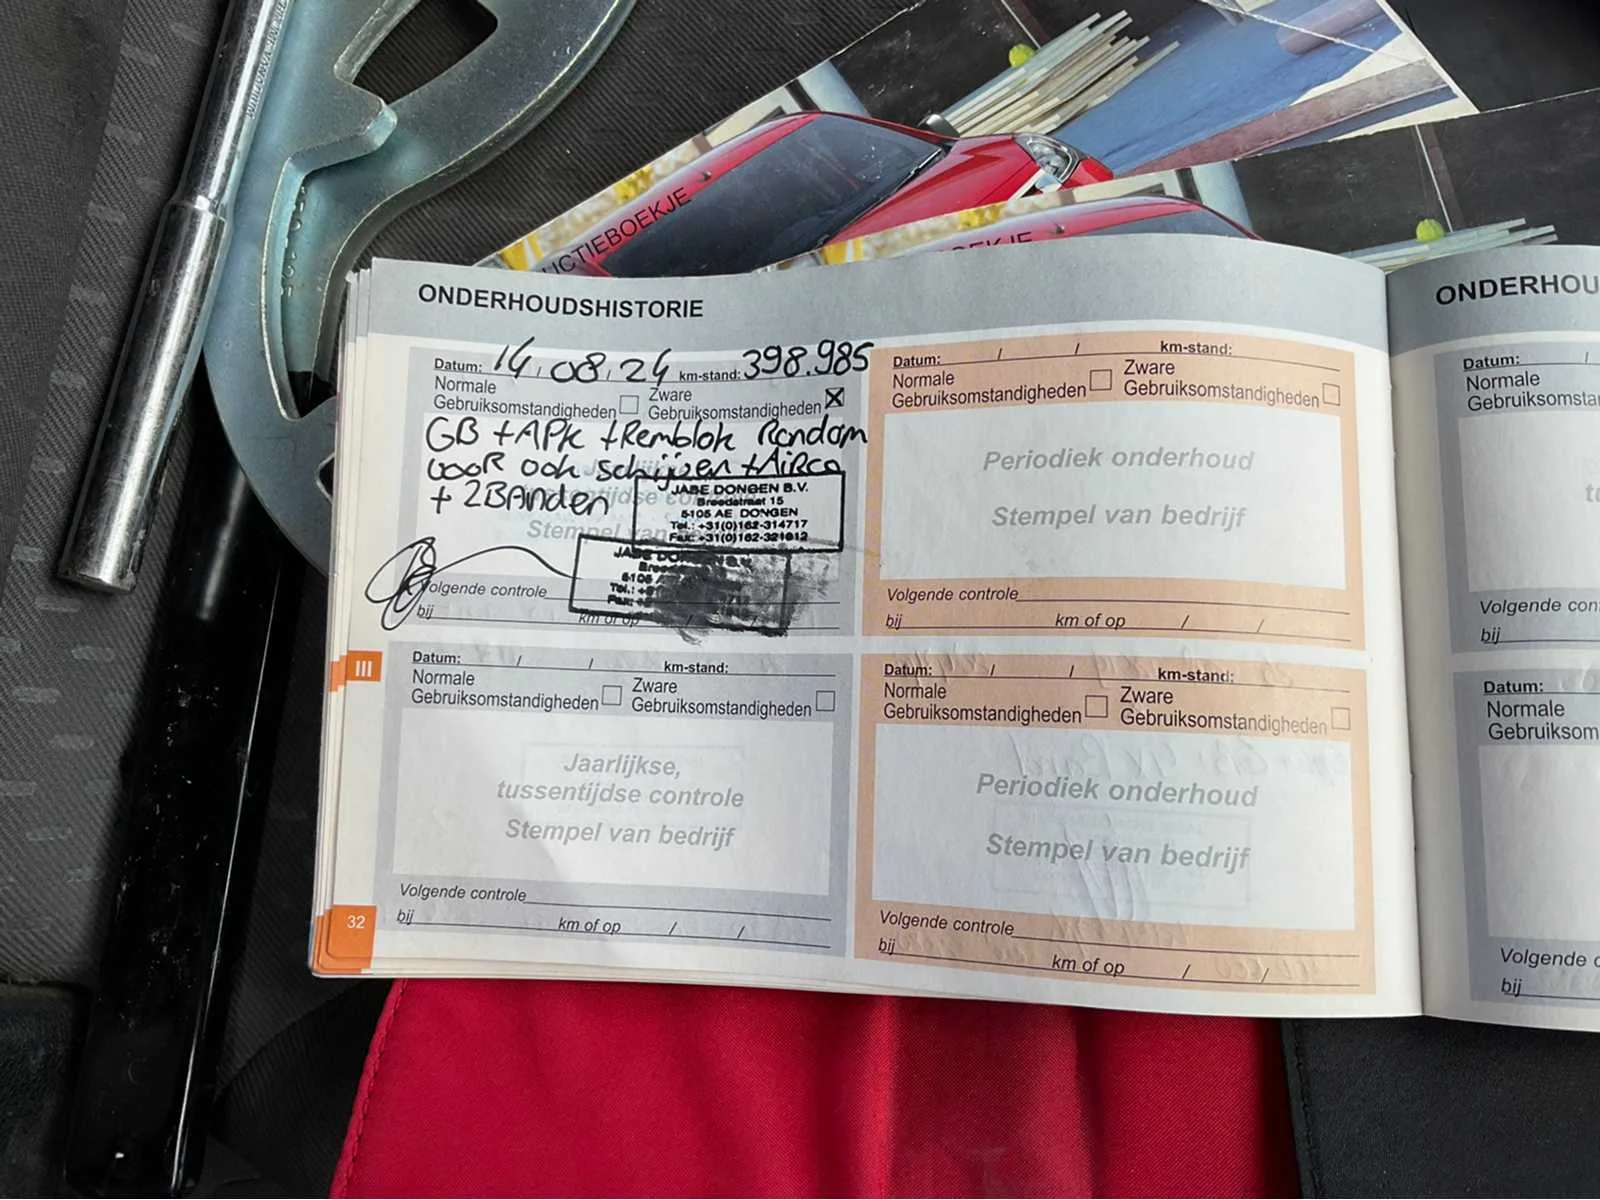 UCTIEBOEKJE
OEKJE
ONDERHOUDSHISTORIE
Datum: 14/08/24 km-stand: 398.985
Normale Gebruiksomstandigheden Zware Gebruiksomstandigheden
GB + APK + Remblok Rondom
voor ook schijven + Airco
+ 2 Banden
JABE DONGEN B.V.
Breedstraat 15
5105 AE DONGEN
Tel.: +31(0)162-314717
Fax: +31(0)162-321612
Stempel van
JABE DONGEN B.V.
Breed
5105
Tel.: +
Fax: +
Volgende controle
bij km of op / /
Datum: / / km-stand:
Normale Gebruiksomstandigheden Zware Gebruiksomstandigheden
Periodiek onderhoud
Stempel van bedrijf
Volgende controle
bij km of op / /
III
Datum: / / km-stand:
Normale Gebruiksomstandigheden Zware Gebruiksomstandigheden
Jaarlijkse,
tussentijdse controle
Stempel van bedrijf
Volgende controle
bij km of op / /
32
Datum: / / km-stand:
Normale Gebruiksomstandigheden Zware Gebruiksomstandigheden
Periodiek onderhoud
Stempel van bedrijf
Volgende controle
bij km of op / /
ONDERHOU
Datum: /
Normale
Gebruiksomsta
Volgende con
bij
Datum:
Normale
Gebruiksom
Volgende c
bij